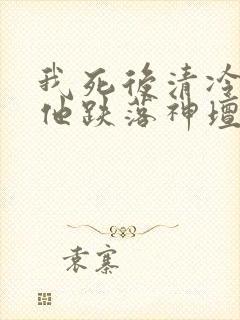 我死後清冷
他跌落神壇
袁寨